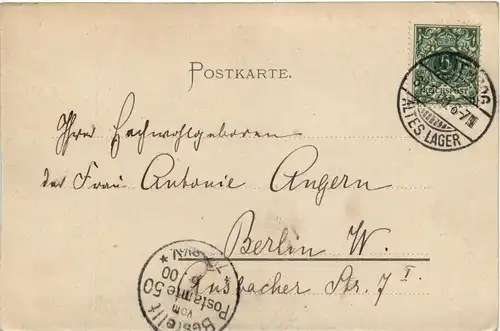 POSTKARTE.
REICHSPOST
ALTES LAGER
6-7N
Ihrer Hochwohlgeboren
der Frau Antonie Angern
Berlin W.
Ansbacher Str. 7 I.
Bestellt
vom
Postamte 50
00